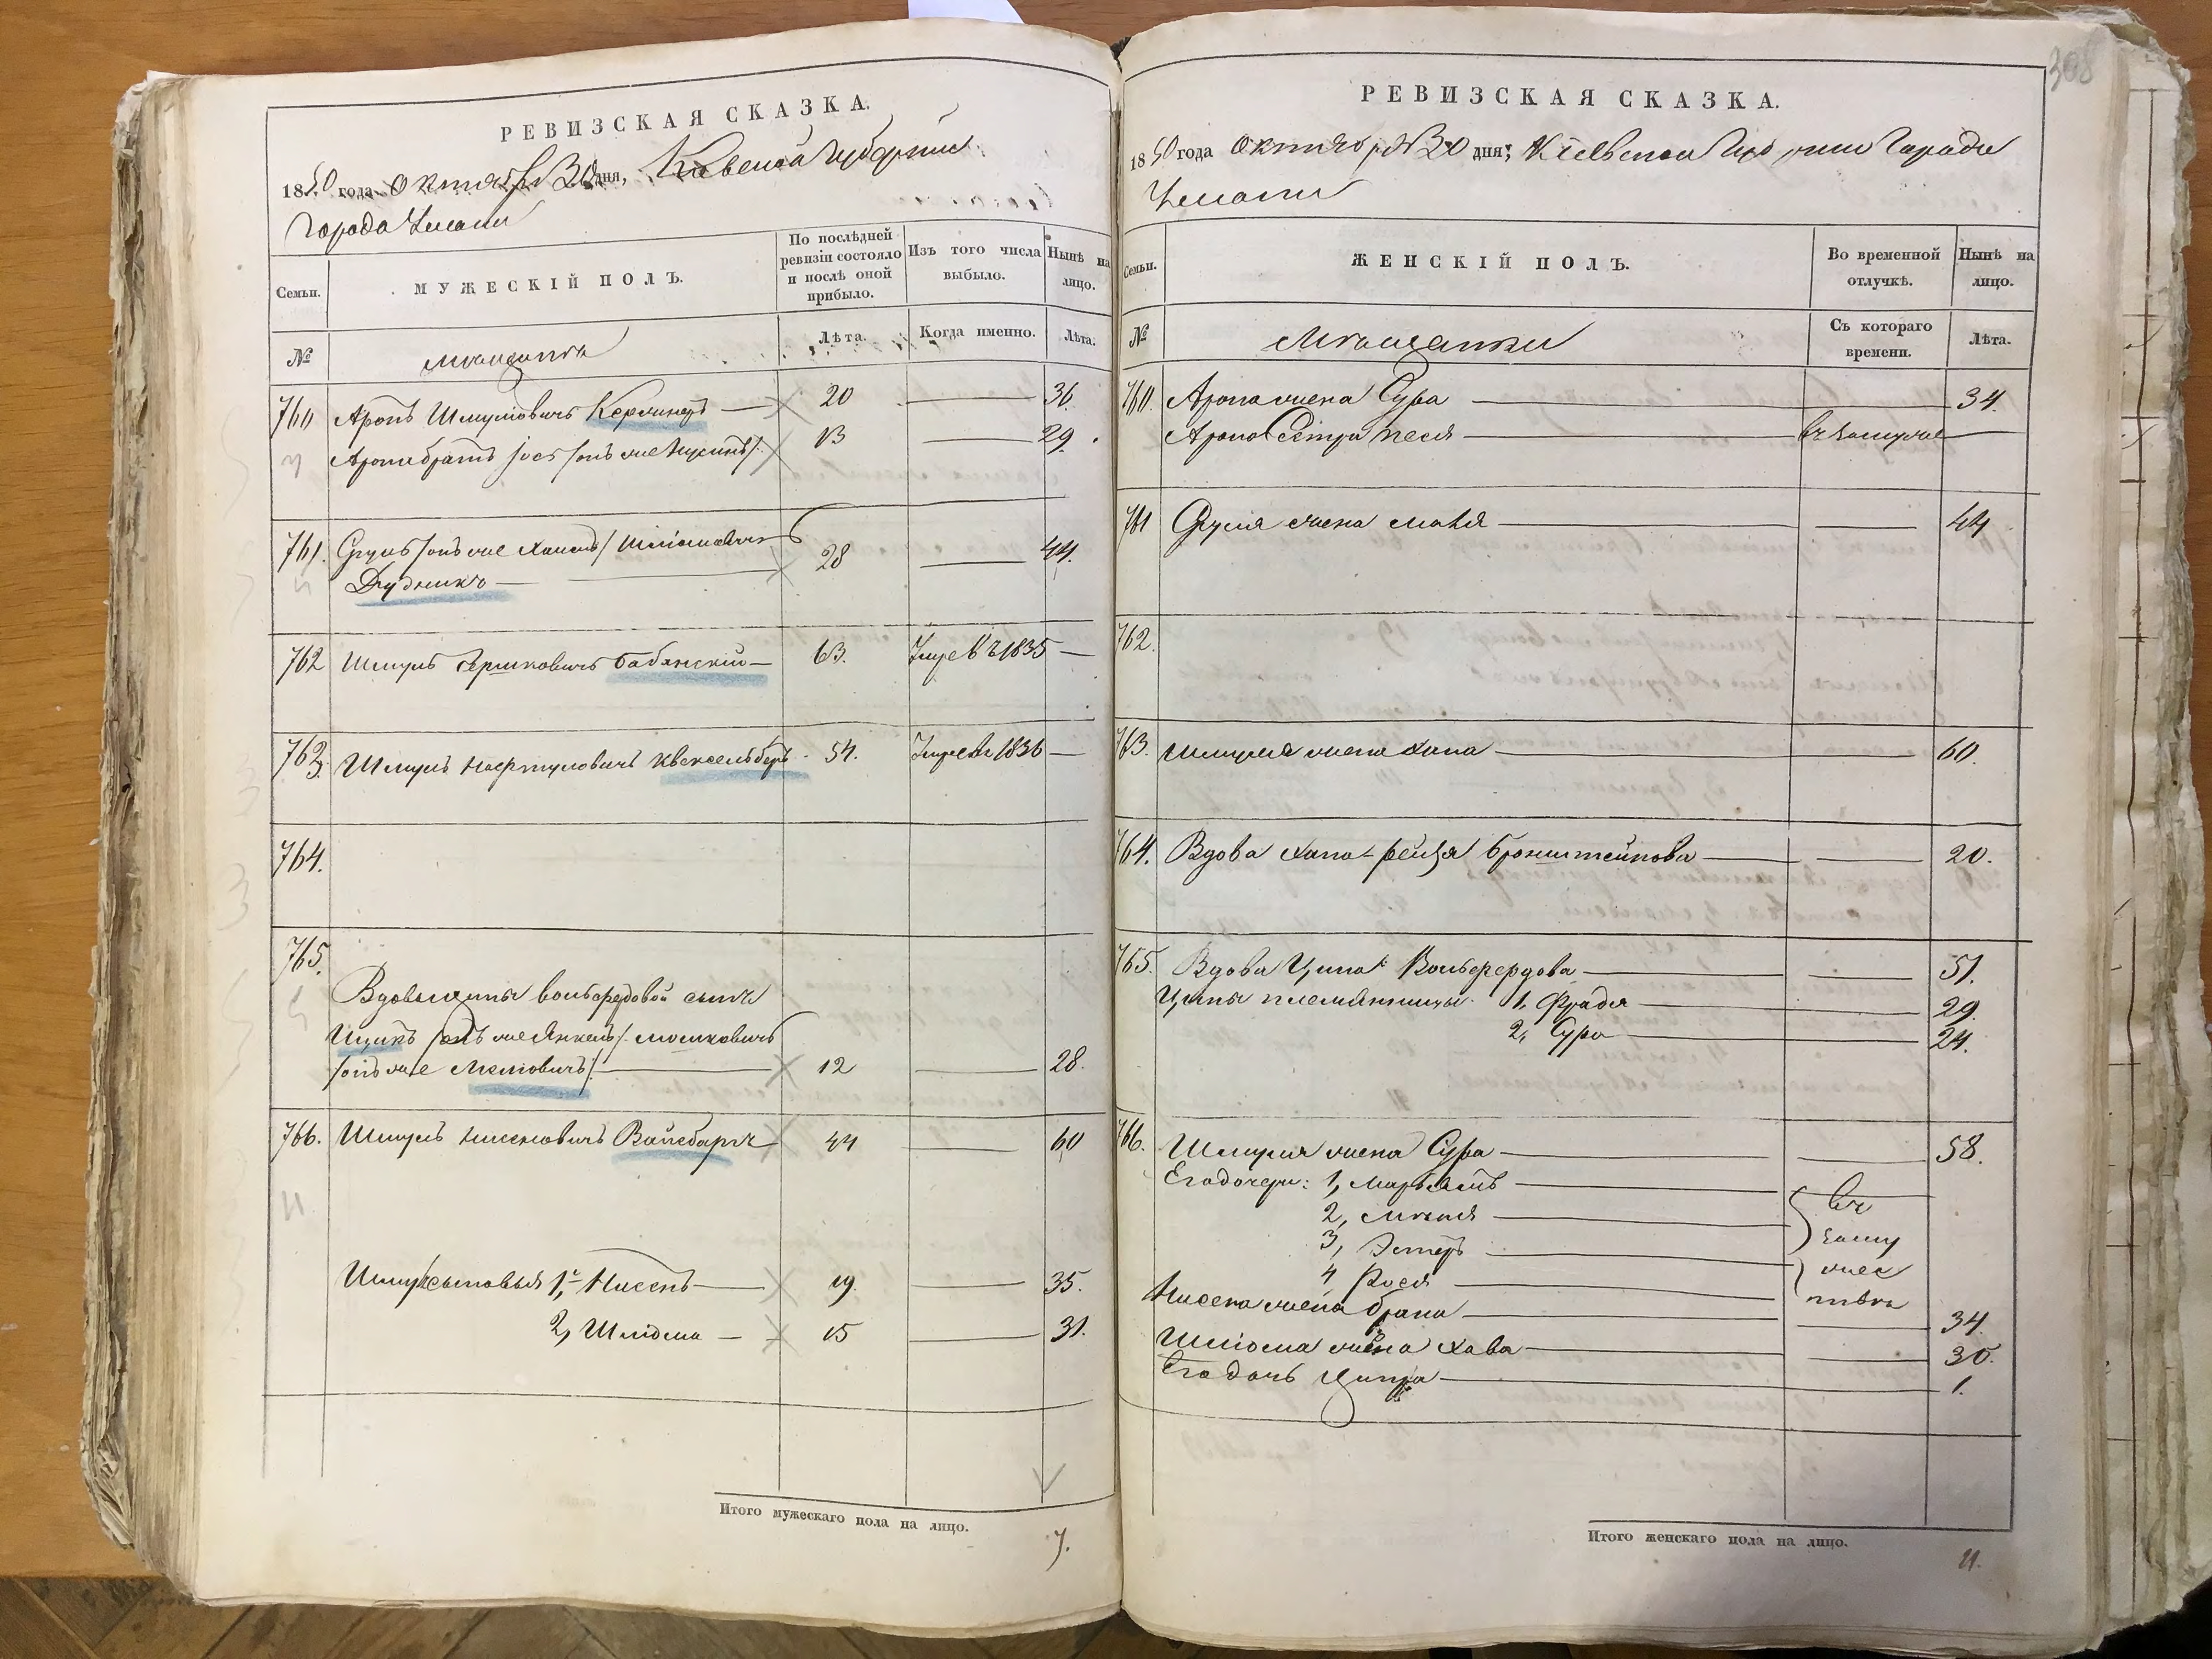 РЕВИЗСКАЯ СКАЗКА.
1850 года Октября 30 дня, Кіевской Губерніи
Города Умани
Семьи.
МУЖЕСКІЙ ПОЛЪ.
По послѣдней ревизіи состояло и послѣ оной прибыло.
Изъ того числа выбыло.
Нынѣ на лицо.
№
Мѣщанѣ
Лѣта.
Когда именно.
Лѣта.
760 Аронъ Шмулiовичъ 20 — 36.
Арона братъ Іос /онъ же / 13 — 29.
761. Сруль /онъ же Хаимъ/ Шлiомовичъ
Дудникъ — 28 — 44.
762 Шмуль Гершковичъ Бабанскій — 63. Умре въ 1835 —
763. Шмуль Квексельберъ 54. Умре въ 1836 —
764.
765.
Вдовы Ципы Вольфердовой сынъ
Ицикъ /онъ же Янкель/ Мошковичъ
/онъ же / — 12 — 28.
766. Шмуль Нисеновичъ Вайсбергъ 44 — 60
Шмуля сыновья 1, Нисенъ — 19. — 35.
2, Шлiома — 15 — 31.
Итого мужескаго пола на лицо.
7.
308
РЕВИЗСКАЯ СКАЗКА.
1850 года Октября 30 дня; Кіевской Губерніи Города
Умани
Семьи.
ЖЕНСКІЙ ПОЛЪ.
Во временной отлучкѣ.
Нынѣ на лицо.
№
Мѣщанки
Съ котораго времени.
Лѣта.
760. Арона жена Сура — 34.
Арона Сестра Песя — въ замужес —
761 Сруля жена Маня — — 44
762.
763. Шмуля жена Хана — — 60.
764. Вдова Хана-Рейзя Бронштейнова — — 20.
765. Вдова Ципа Вольфердова — — 51.
Ципы племянницы 1, Фрадя — 29.
2, Сура — 24.
766. Шмуля жена Сура — — 58.
Его дочери: 1, Марьямъ — въ
2, — заму
3, Эстеръ — жес
4 Рося — твѣ
Нисена жена Брана — — 34.
Шлiома жена Хава — — 30.
Его дочь Ципра — 1.
Итого женскаго пола на лицо.
11.